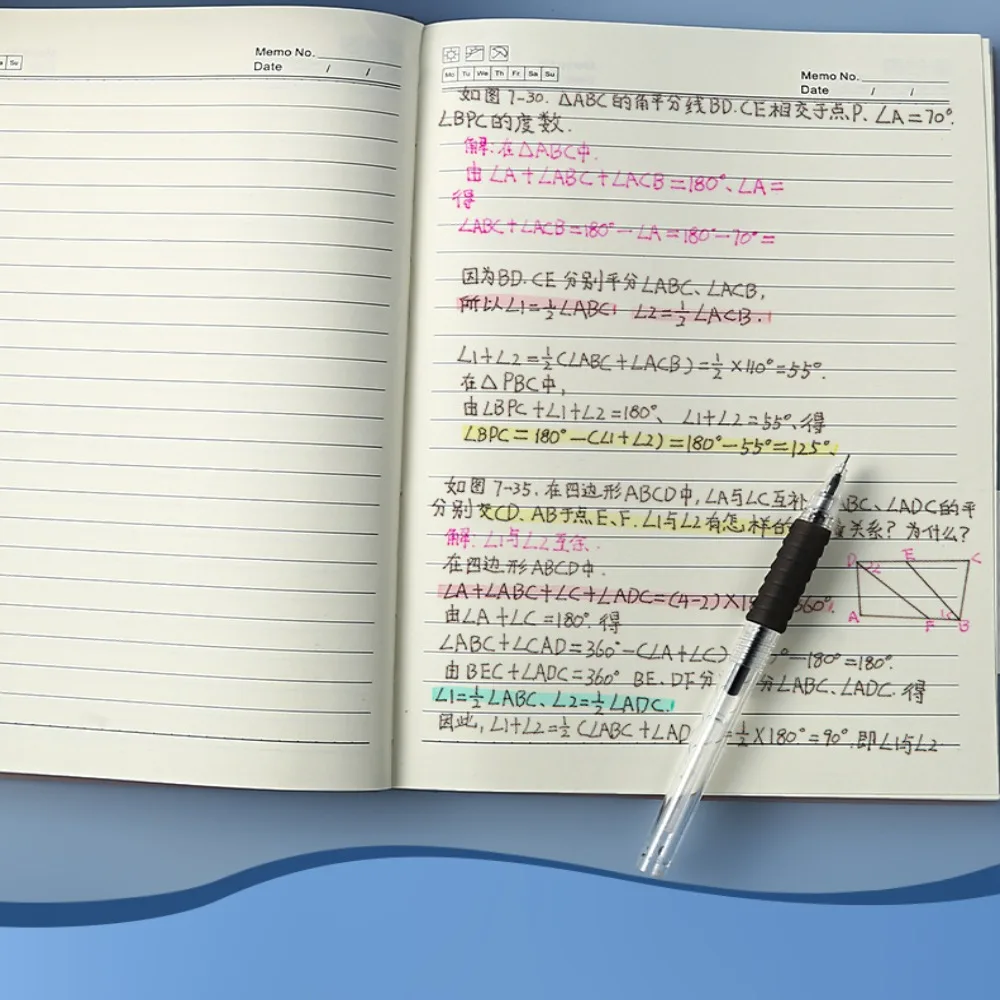 Su
Memo No.
Date / /
Mo Tu We Th Fr Sa Su
Memo No.
Date / /
如图7-30.△ABC的角平分线BD.CE相交于点P、∠A=70°.
∠BPC的度数.
解:在△ABC中.
由∠A+∠ABC+∠ACB=180°、∠A=
得
∠ABC+∠ACB=180°-∠A=180°-70°=
因为BD.CE分别平分∠ABC、∠ACB,
所以∠1=½∠ABC, ∠2=½∠ACB.
∠1+∠2=½(∠ABC+∠ACB)=½×110°=55°.
在△PBC中,
由∠BPC+∠1+∠2=180°、∠1+∠2=55°、得
∠BPC=180°-(∠1+∠2)=180°-55°=125°.
如图7-35.在四边形ABCD中,∠A与∠C互补 ABC、∠ADC的平
分别交CD、AB于点E、F.∠1与∠2有怎样的 关系?为什么?
解:∠1与∠2互余.
在四边形ABCD中.
∠A+∠ABC+∠C+∠ADC=(4-2)×18 360°.
由∠A+∠C=180°.得
∠ABC+∠CAD=360°-(∠A+∠C) °-180°=180°.
由BEC+∠ADC=360° BE、DF分 分∠ABC、∠ADC.得
∠1=½∠ABC、∠2=½∠ADC.
因此,∠1+∠2=½(∠ABC+∠AD =½×180°=90°.即∠1与∠2
D 2 E C
A F 1 B